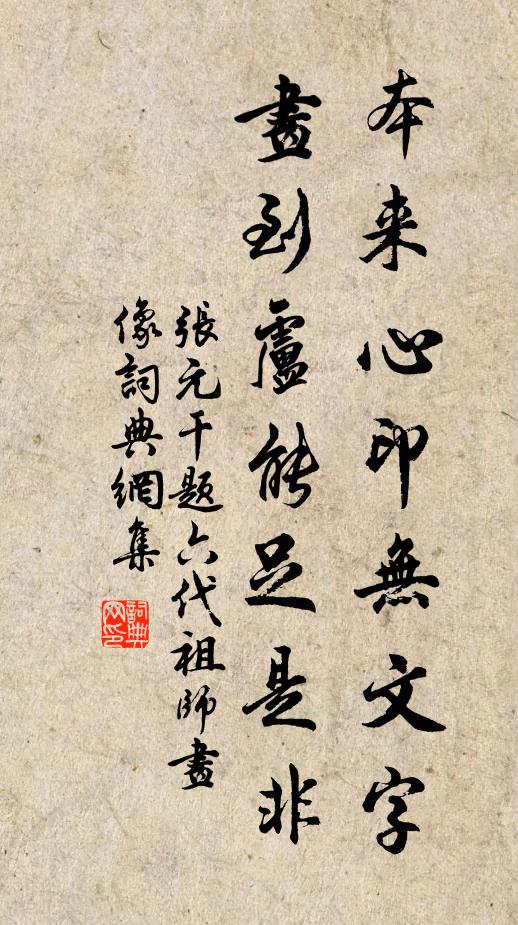 本来心印無文字
畫到盧能足是非
張元干题六代祖師畫
像詞典網集
詞典網印